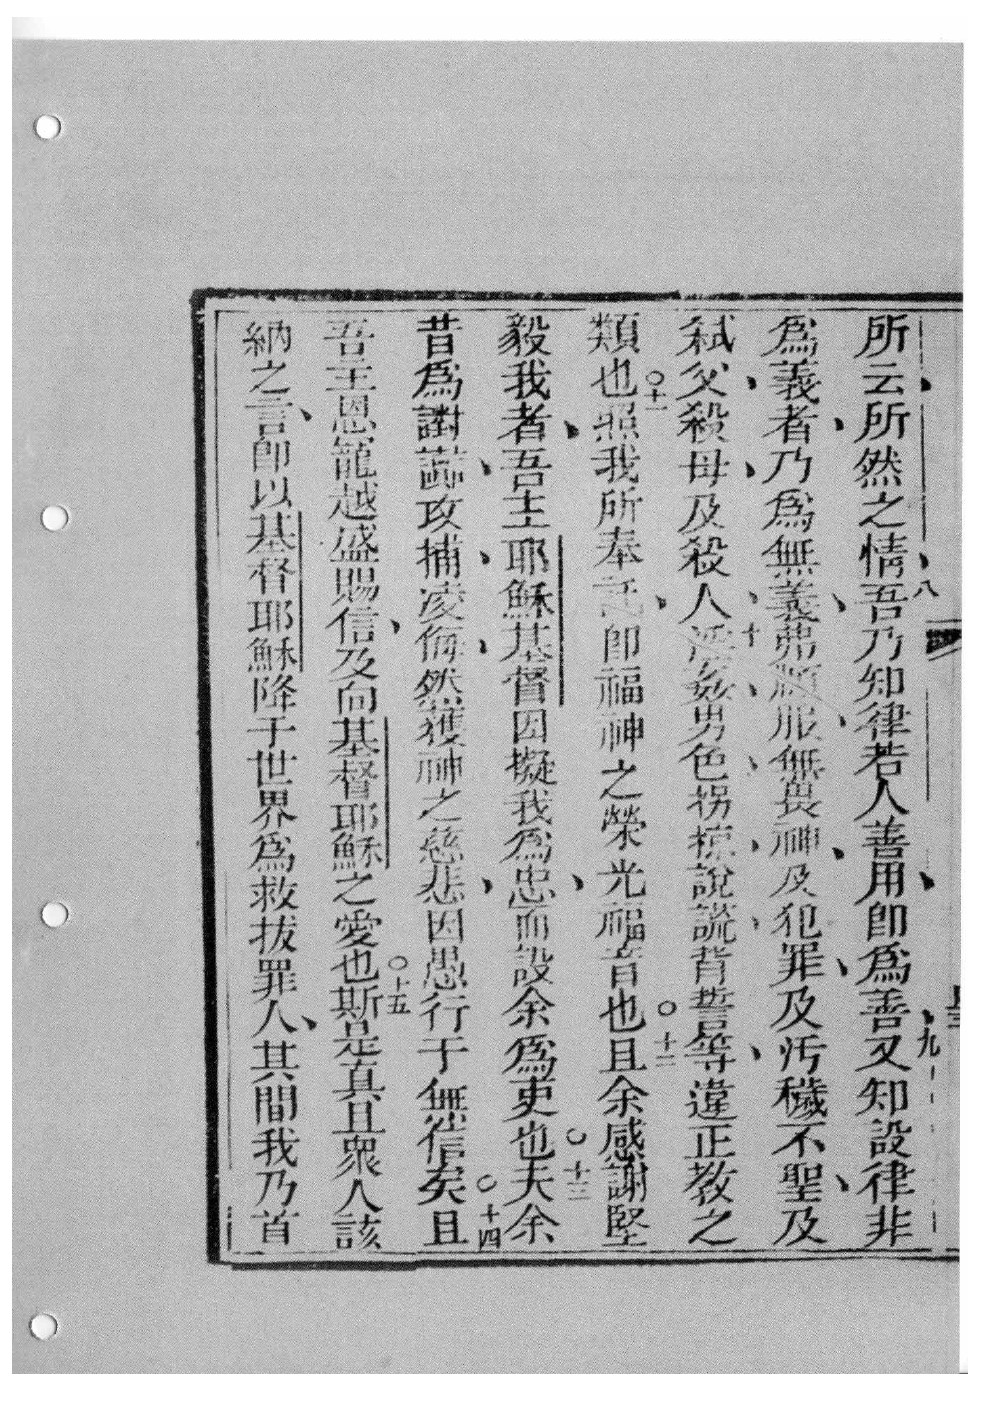 所云所然之情八吾乃知律若人善用卽爲善九又知設律非
爲義者乃爲無義弗願服無畏神及犯罪及汚穢不聖及
弑父殺母及殺人十淫姦男色拐掠說謊背誓等違正教之
類也○十一照我所奉託卽福神之榮光福音也○十二且余感謝堅
毅我者吾主耶穌基督因擬我爲忠而設余爲吏也○十三夫余
昔爲謝攻捕凌侮然獲神之慈悲因愚行于無信矣○十四且
吾主恩寵越盛賜信及向基督耶穌之愛也○十五斯是真且衆人該
納之言卽以基督耶穌降于世界爲救拔罪人其間我乃首